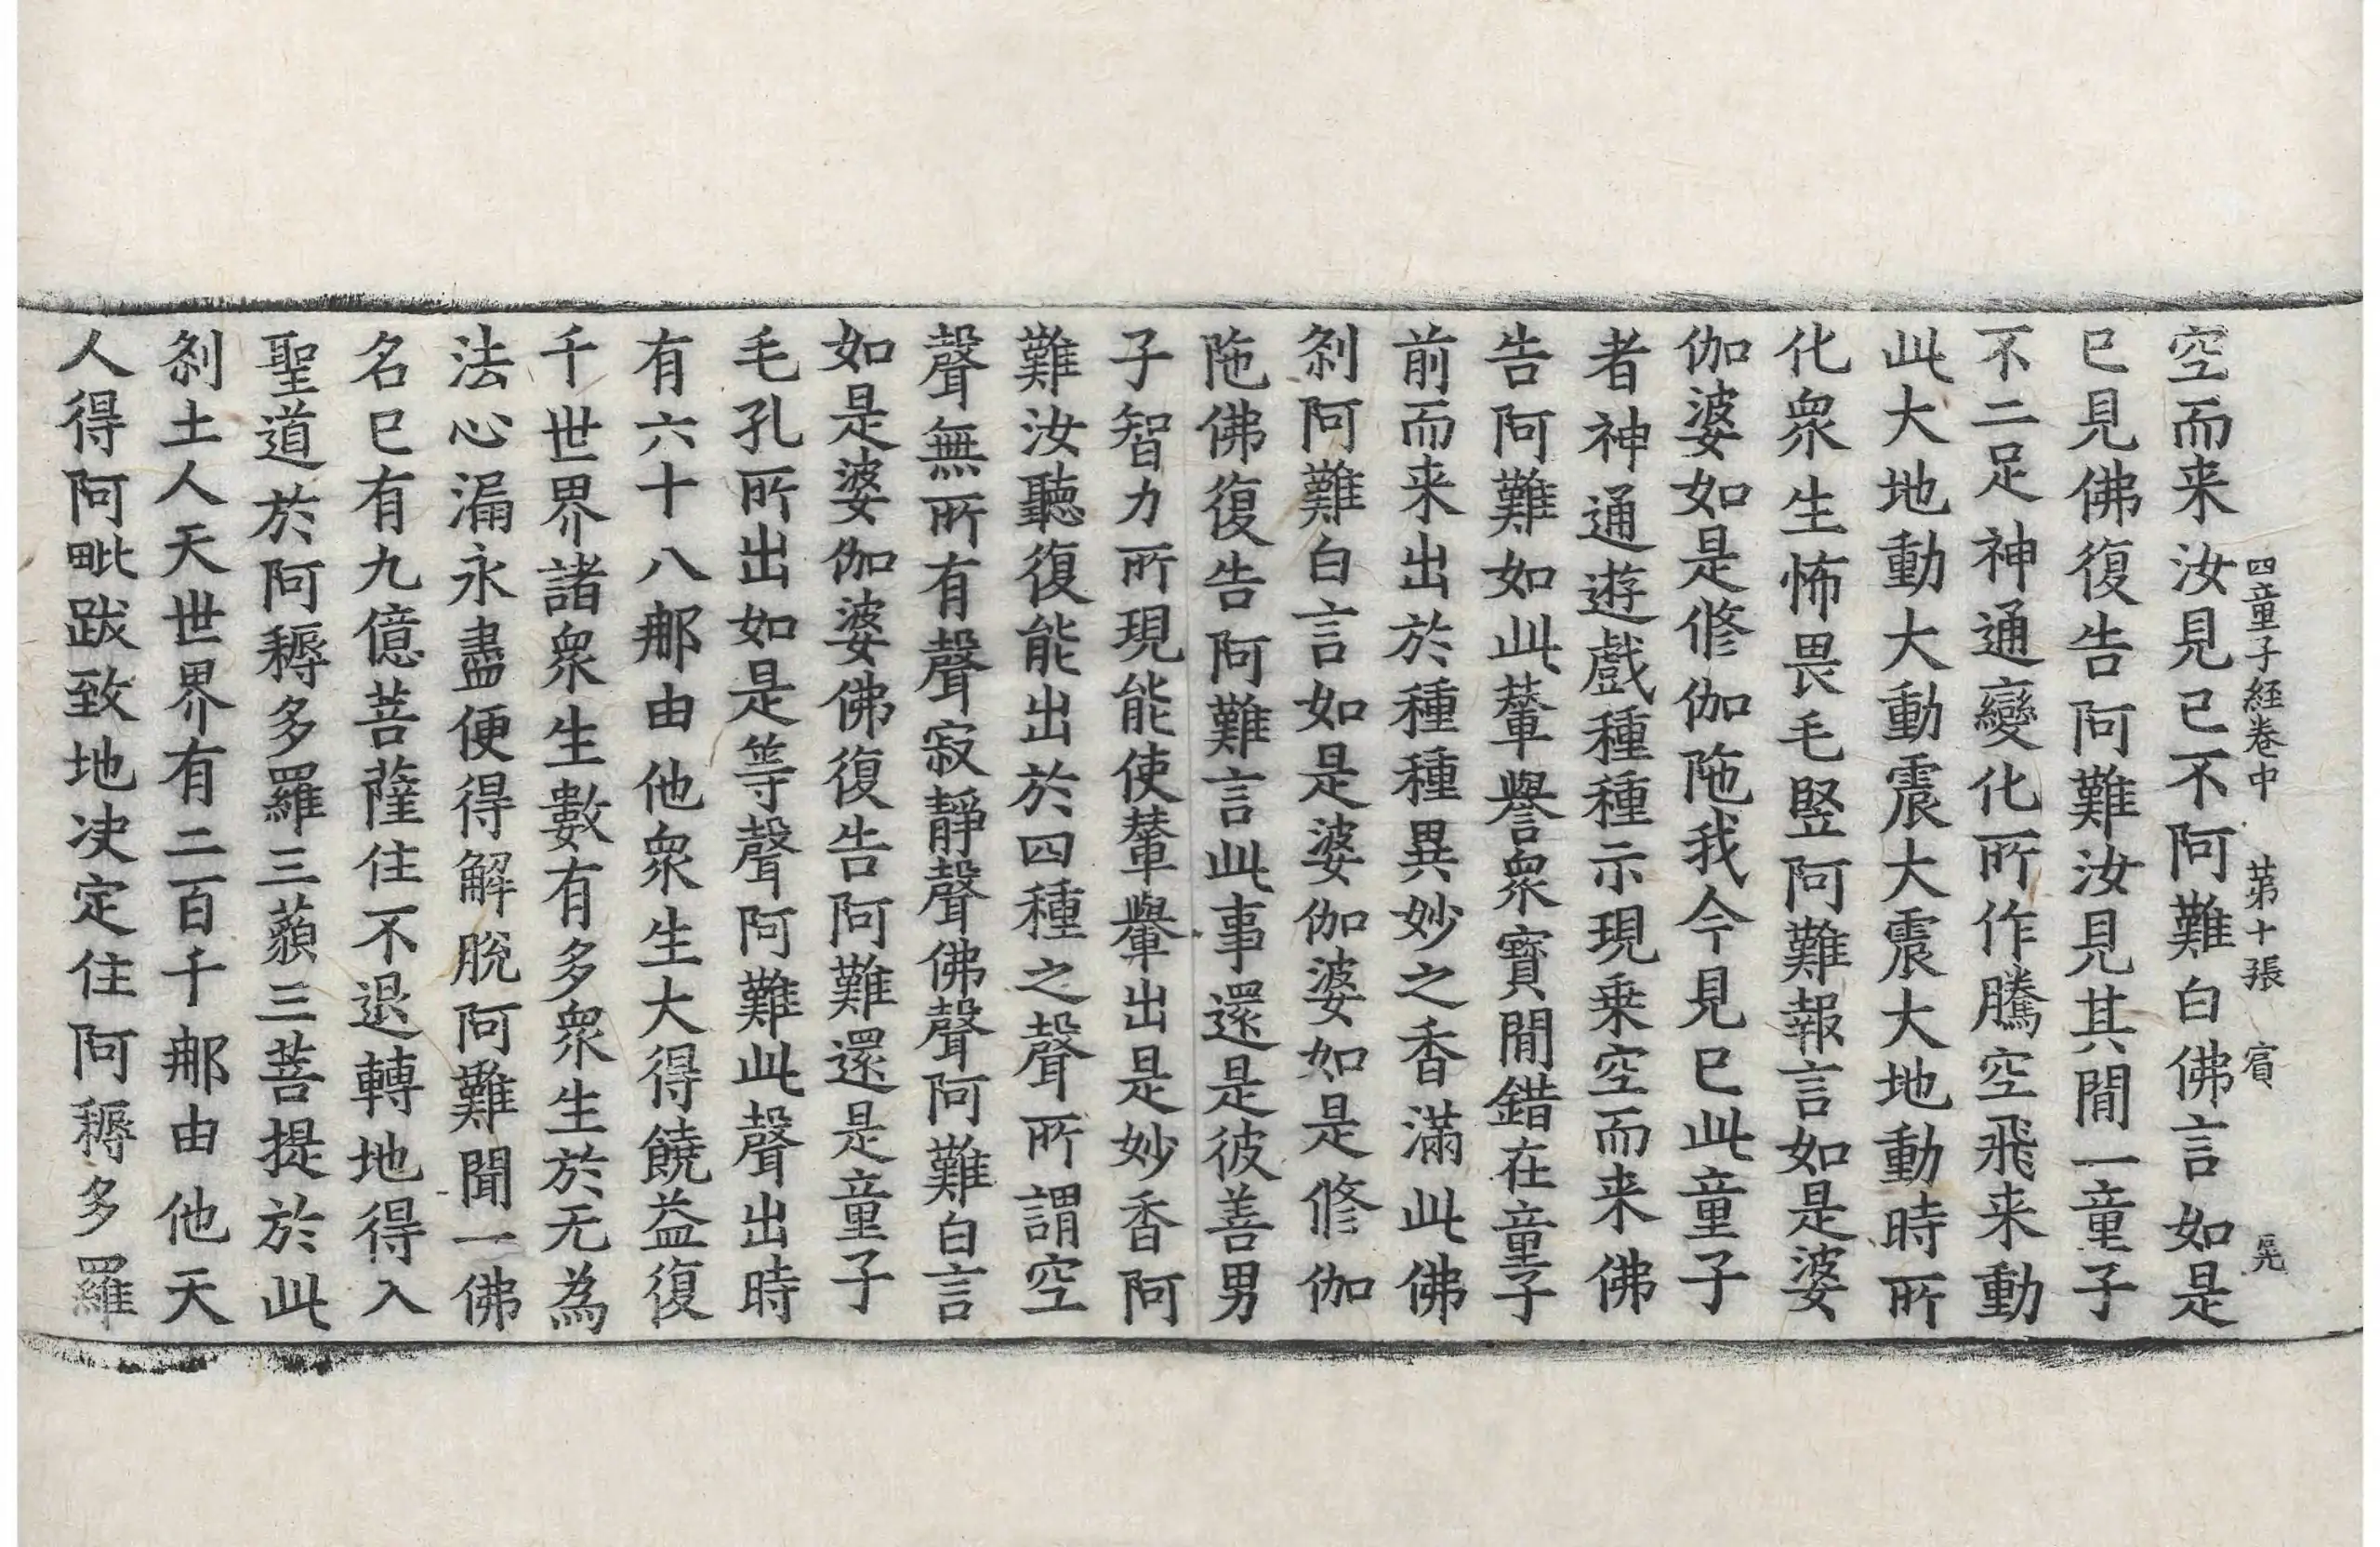 四童子経卷中　苐十張　賔　晃
空而来汝見已不阿難白佛言如是
已見佛復告阿難汝見其閒一童子
不二足神通變化所作騰空飛来動
此大地動大動震大震大地動時所
化衆生怖畏毛竪阿難報言如是婆
伽婆如是修伽陁我今見已此童子
者神通遊戲種種示現乗空而来佛
告阿難如此輦轝衆寳閒錯在童子
前而来出於種種異妙之香滿此佛
刹阿難白言如是婆伽婆如是修伽
陁佛復告阿難言此事還是彼善男
子智力所現能使輦轝出是妙香阿
難汝聽復能出於四種之聲所謂空
聲無所有聲寂靜聲佛聲阿難白言
如是婆伽婆佛復告阿難還是童子
毛孔所出如是等聲阿難此聲出時
有六十八那由他衆生大得饒益復
千世界諸衆生數有多衆生於无為
法心漏永盡便得解脫阿難聞一佛
名已有九億菩薩住不退轉地得入
聖道於阿耨多羅三藐三菩提於此
刹土人天世界有二百千那由他天
人得阿毗跋致地决定住阿耨多羅